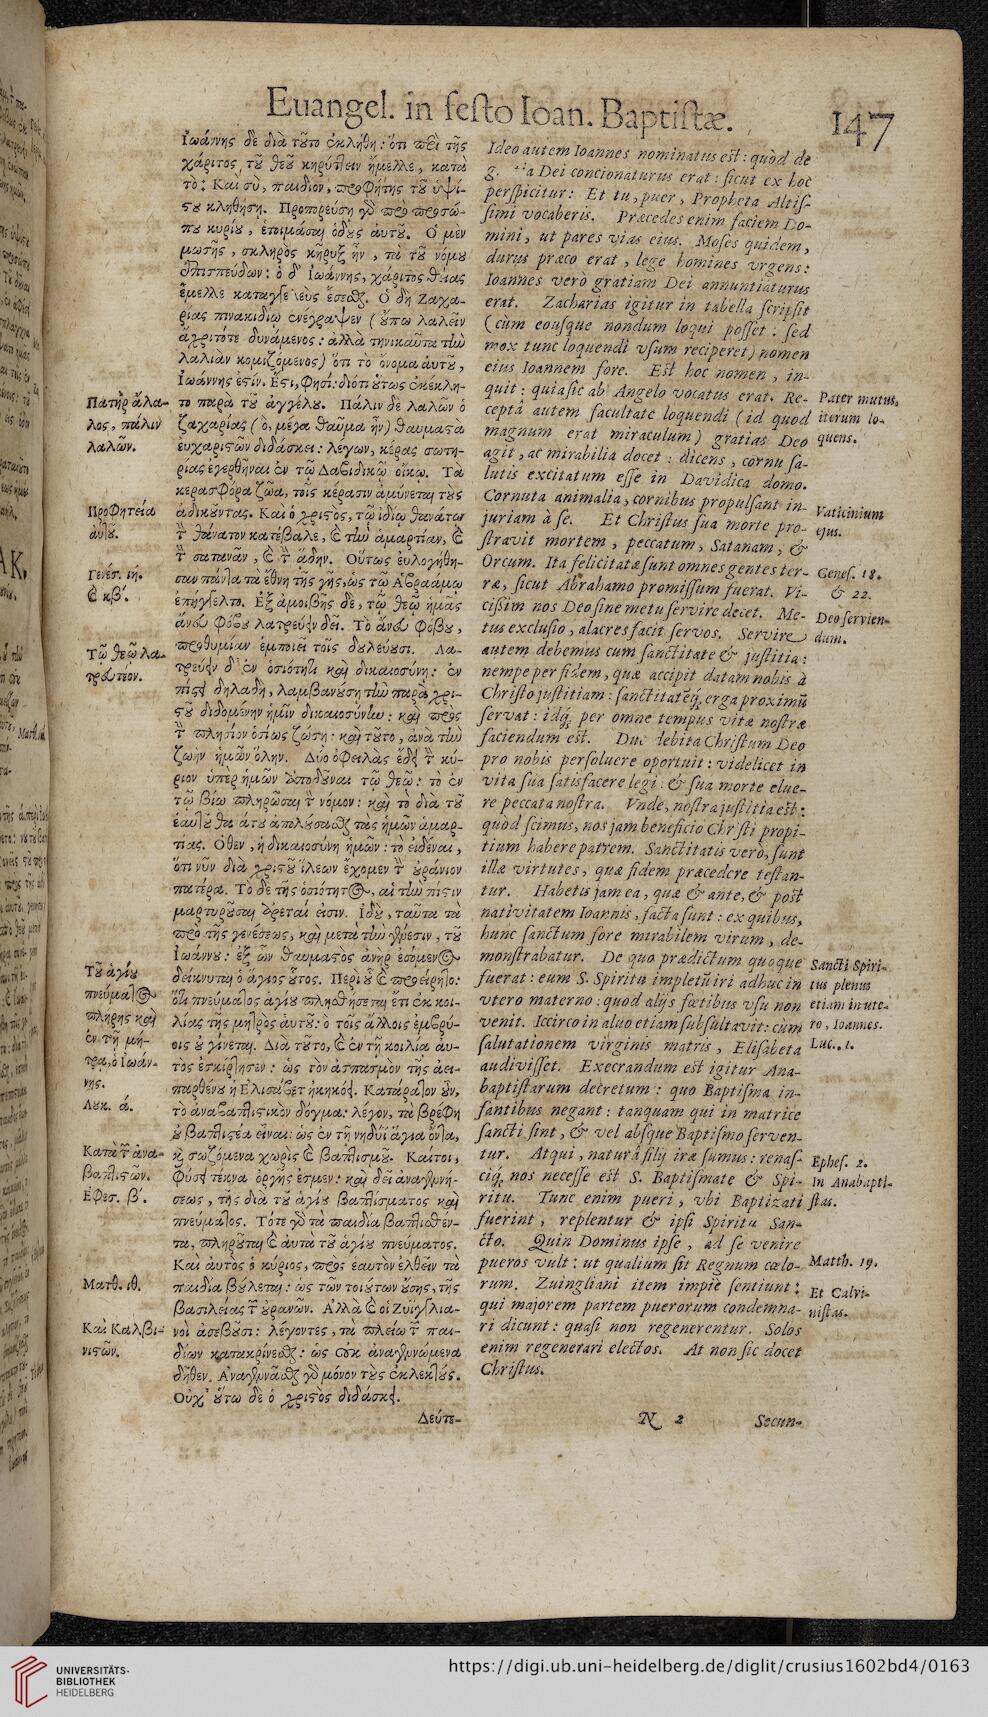 Euangel. in festo Ioan. Baptistæ. 147
Ἰωάννης δὲ διὰ τοῦτο ἐκλήθη: ὅτι περὶ τῆς
χάριτος τοῦ θεοῦ κηρύττειν ἤμελλε, κατὰ
τό: Καὶ σὺ, παιδίον, προφήτης τοῦ ὑψί-
στου κληθήσῃ. Προπορεύσῃ γὰρ πρὸ προσώ-
που κυρίου, ἑτοιμάσαι ὁδοὺς αὐτοῦ. Ὁ μὲν
μωσῆς, σκληρὸς κῆρυξ ἦν, τὰ τοῦ νόμου
ἐπισπεύδων: ὁ δ' Ἰωάννης, χάριτος θείας
ἔμελλε καταγγελεὺς ἔσεσθαι. Ὁ δὴ Ζαχα-
ρίας πινακιδίῳ ἐνέγραψεν (οὔπω λαλεῖν
ἄχρι τότε δυνάμενος: ἀλλὰ τηνικαῦτα τὴν
λαλιὰν κομιζόμενος) ὅτι τὸ ὄνομα αὐτοῦ,
Ἰωάννης ἐστίν. Ἔστι, φησί: διότι οὕτως ἐκέκλη-
το παρὰ τοῦ ἀγγέλου. Πάλιν δὲ λαλῶν ὁ
ζαχαρίας (ὃ, μέγα θαῦμα ἦν) θαυμαστὰ
εὐχαριστῶν διδάσκει: λέγων, κέρας σωτη-
ρίας ἐγερθῆναι ἐν τῷ Δαβιδικῷ οἴκῳ. Τὰ
κερασφόρα ζῶα, τοῖς κέρασιν ἀμύνεται τοὺς
ἀδικοῦντας. Καὶ ὁ χριστὸς, τῷ ἰδίῳ θανάτῳ
τὸν θάνατον κατέβαλε, καὶ τὴν ἁμαρτίαν, καὶ
τὸν σατανᾶν, καὶ τὸν ᾅδην. Οὕτως εὐλογήθη-
σαν πάντα τὰ ἔθνη τῆς γῆς, ὡς τῷ Ἀβραάμῳ
ἐπήγγελτο. Ἐξ ἀμοιβῆς δὲ, τῷ θεῷ ἡμᾶς
ἄνευ φόβου λατρεύειν δεῖ. Τὸ ἄνευ φόβου,
προθυμίαν ἐμποιεῖ τοῖς δουλεύουσι. Λα-
τρεύειν δ' ἐν ὁσιότητι καὶ δικαιοσύνῃ: ἐν
πίστει δηλαδὴ, λαμβανούσῃ τὴν παρὰ χρι-
στοῦ διδομένην ἡμῖν δικαιοσύνην: καὶ πρὸς
τὸν πλησίον ὁσίως ζώσῃ: καὶ τοῦτο, ἀνὰ τὴν
ζωὴν ἡμῶν ὅλην. Δύο ὀφειλὰς ἔδει τὸν κύ-
ριον ὑπὲρ ἡμῶν ἀποδοῦναι τῷ θεῷ: τὸ ἐν
τῷ βίῳ πληρῶσαι τὸν νόμον: καὶ τὸ διὰ τοῦ
ἑαυτοῦ θανάτου ἀπολούσασθαι τὰς ἡμῶν ἁμαρ-
τίας. Ὅθεν, ἡ δικαιοσύνη ἡμῶν: τὸ εἰδέναι,
ὅτι νῦν διὰ χριστοῦ ἵλεων ἔχομεν τὸν οὐράνιον
πατέρα. Τὸ δὲ τῆς ὁσιότητος, αἱ τὴν πίστιν
μαρτυροῦσαι ἀρεταί εἰσιν. Ἰδοὺ, ταῦτα τὰ
πρὸ τῆς γενέσεως, καὶ μετὰ τὴν γένεσιν, τοῦ
Ἰωάννου: ἐξ ὧν θαυμαστὸς ἀνὴρ ἐσόμενος
δείκνυται ὁ ἅγιος οὗτος. Περὶ οὗ καὶ προείρητο:
ὅτι πνεύματος ἁγίου πλησθήσεται ἔτι ἐκ κοι-
λίας τῆς μητρὸς αὐτοῦ: ὃ τοῖς ἄλλοις ἐμβρύ-
οις οὐ γίνεται. Διὰ τοῦτο, καὶ ἐν τῇ κοιλίᾳ αὐ-
τὸς ἐσκίρτησεν: ὡς τὸν ἀσπασμὸν τῆς ἀει-
παρθένου ἡ Ἐλισάβετ ἠκηκόει. Κατάρατον οὖν,
τὸ ἀναβαπτιστικὸν δόγμα: λέγον, τὰ βρέφη
οὐ βαπτιστέα εἶναι: ὡς ἐν τῇ νηδύϊ ἅγια ὄντα,
καὶ σωζόμενα χωρὶς καὶ βαπτισμοῦ. Καίτοι,
φύσει τέκνα ὀργῆς ἐσμεν: καὶ δεῖ ἀναγεννή-
σεως, τῆς διὰ τοῦ ἁγίου βαπτίσματος καὶ
πνεύματος. Τότε γὰρ τὰ παιδία βαπτισθέν-
τα, πληροῦται καὶ αὐτὰ τοῦ ἁγίου πνεύματος.
Καὶ αὐτὸς ὁ κύριος, πρὸς ἑαυτὸν ἐλθεῖν τὰ
παιδία βούλεται: ὡς τῶν τοιούτων οὔσης, τῆς
βασιλείας τῶν οὐρανῶν. Ἀλλὰ καὶ οἱ Ζυιγγλια-
νοὶ ἀσεβοῦσι: λέγοντες, τὰ πλείω τῶν παι-
δίων κατακρίνεσθαι: ὡς οὐκ ἀναγεννώμενα
δῆθεν. Ἀναγεννᾶσθαι γὰρ μόνον τοὺς ἐκλεκτούς.
Οὐχ' οὕτω δὲ ὁ χριστὸς διδάσκει.
Δεύτε-
Πατὴρ ἄλα-
λος, πάλιν
λαλῶν.
Προφητεία
αὐτοῦ.
Γενέσ. ιή.
καὶ κβ'.
Τῷ θεῷ λα-
τρευτέον.
Τοῦ ἁγίου
πνεύματος
πλήρης καὶ
ἐν τῇ μή-
τρᾳ, ὁ Ἰωάν-
νης.
Λουκ. ά.
Κατὰ τῶν ἀνα-
βαπτιστῶν.
Ἐφεσ. β'.
Ματθ. ιθ.
Καὶ Καλβι-
νιστῶν.
Ideo autem Ioannes nominatus est: quòd de
Dei concionaturus erat: sicut ex hoc
perspicitur: Et tu, puer, Propheta Altis-
simi vocaberis. Præcedes enim faciem Do-
mini, ut pares vias eius. Moses quidem,
durus præco erat, lege homines vrgens:
Ioannes verò gratiam Dei annuntiaturus
erat. Zacharias igitur in tabella scripsit
(cùm eousque nondum loqui posset: sed
mox tunc loquendi vsum reciperet) nomen
eius Ioannem fore. Est hoc nomen, in-
quit: quia sic ab Angelo vocatus erat. Re-
ceptâ autem facultate loquendi (id quod
magnum erat miraculum) gratias Deo
agit, ac mirabilia docet: dicens, cornu sa-
lutis excitatum esse in Davidica domo.
Cornuta animalia, cornibus propulsant in-
juriam à se. Et Christus sua morte pro-
stravit mortem, peccatum, Satanam, &
Orcum. Ita felicitatæ sunt omnes gentes ter-
ræ, sicut Abrahamo promissum fuerat. Vi-
cissim nos Deo sine metu servire decet. Me-
tus exclusio, alacres facit servos. Servire
autem debemus cum sanctitate & justitia:
nempe per fidem, quæ accipit datam nobis à
Christo justitiam: sanctitateq́; erga proximũ
servat: idq́; per omne tempus vitæ nostræ
faciendum est. Duo debita Christum Deo
pro nobis persoluere oportuit: videlicet in
vita sua satisfacere legi: & sua morte elue-
re peccata nostra. Vnde, nostra justitia est:
quòd scimus, nos jam beneficio Christi propi-
tium habere patrem. Sanctitatis verò, sunt
illæ virtutes, quæ fidem præcedere testan-
tur. Habetis jam ea, quæ & ante, & post
nativitatem Ioannis, facta sunt: ex quibus,
hunc sanctum fore mirabilem virum, de-
monstrabatur. De quo prædictum quoque
fuerat: eum S. Spiritu impletũ iri adhuc in
vtero materno: quod alijs fœtibus vsu non
venit. Iccirco in aluo etiam subsultavit: cùm
salutationem virginis matris, Elisabeta
audivisset. Execrandum est igitur Ana-
baptistarum decretum: quo Baptisma in-
fantibus negant: tanquam qui in matrice
sancti sint, & vel absque Baptismo serven-
tur. Atqui, naturâ filij iræ sumus: renas-
ciq́; nos necesse est S. Baptismate & Spi-
ritu. Tunc enim pueri, vbi Baptizati
fuerint, replentur & ipsi Spiritu San-
cto. Quin Dominus ipse, ad se venire
pueros vult: ut qualium sit Regnum cœlo-
rum. Zuingliani item impiè sentiunt:
qui majorem partem puerorum condemna-
ri dicunt: quasi non regenerentur. Solos
enim regenerari electos. At non sic docet
Christus.
N 2 Secun-
Pater mutus,
iterum lo-
quens.
Vaticinium
ejus.
Genes. 18.
& 22.
Deo servien-
dum.
Sancti Spiri-
tus plenus
etiam in ute-
ro, Ioannes.
Luc. 1.
Ephes. 2.
In Anabapti-
stas.
Matth. 19.
Et Calvi-
nistas.
UNIVERSITÄTS-
BIBLIOTHEK
HEIDELBERG
https://digi.ub.uni-heidelberg.de/diglit/crusius1602bd4/0163